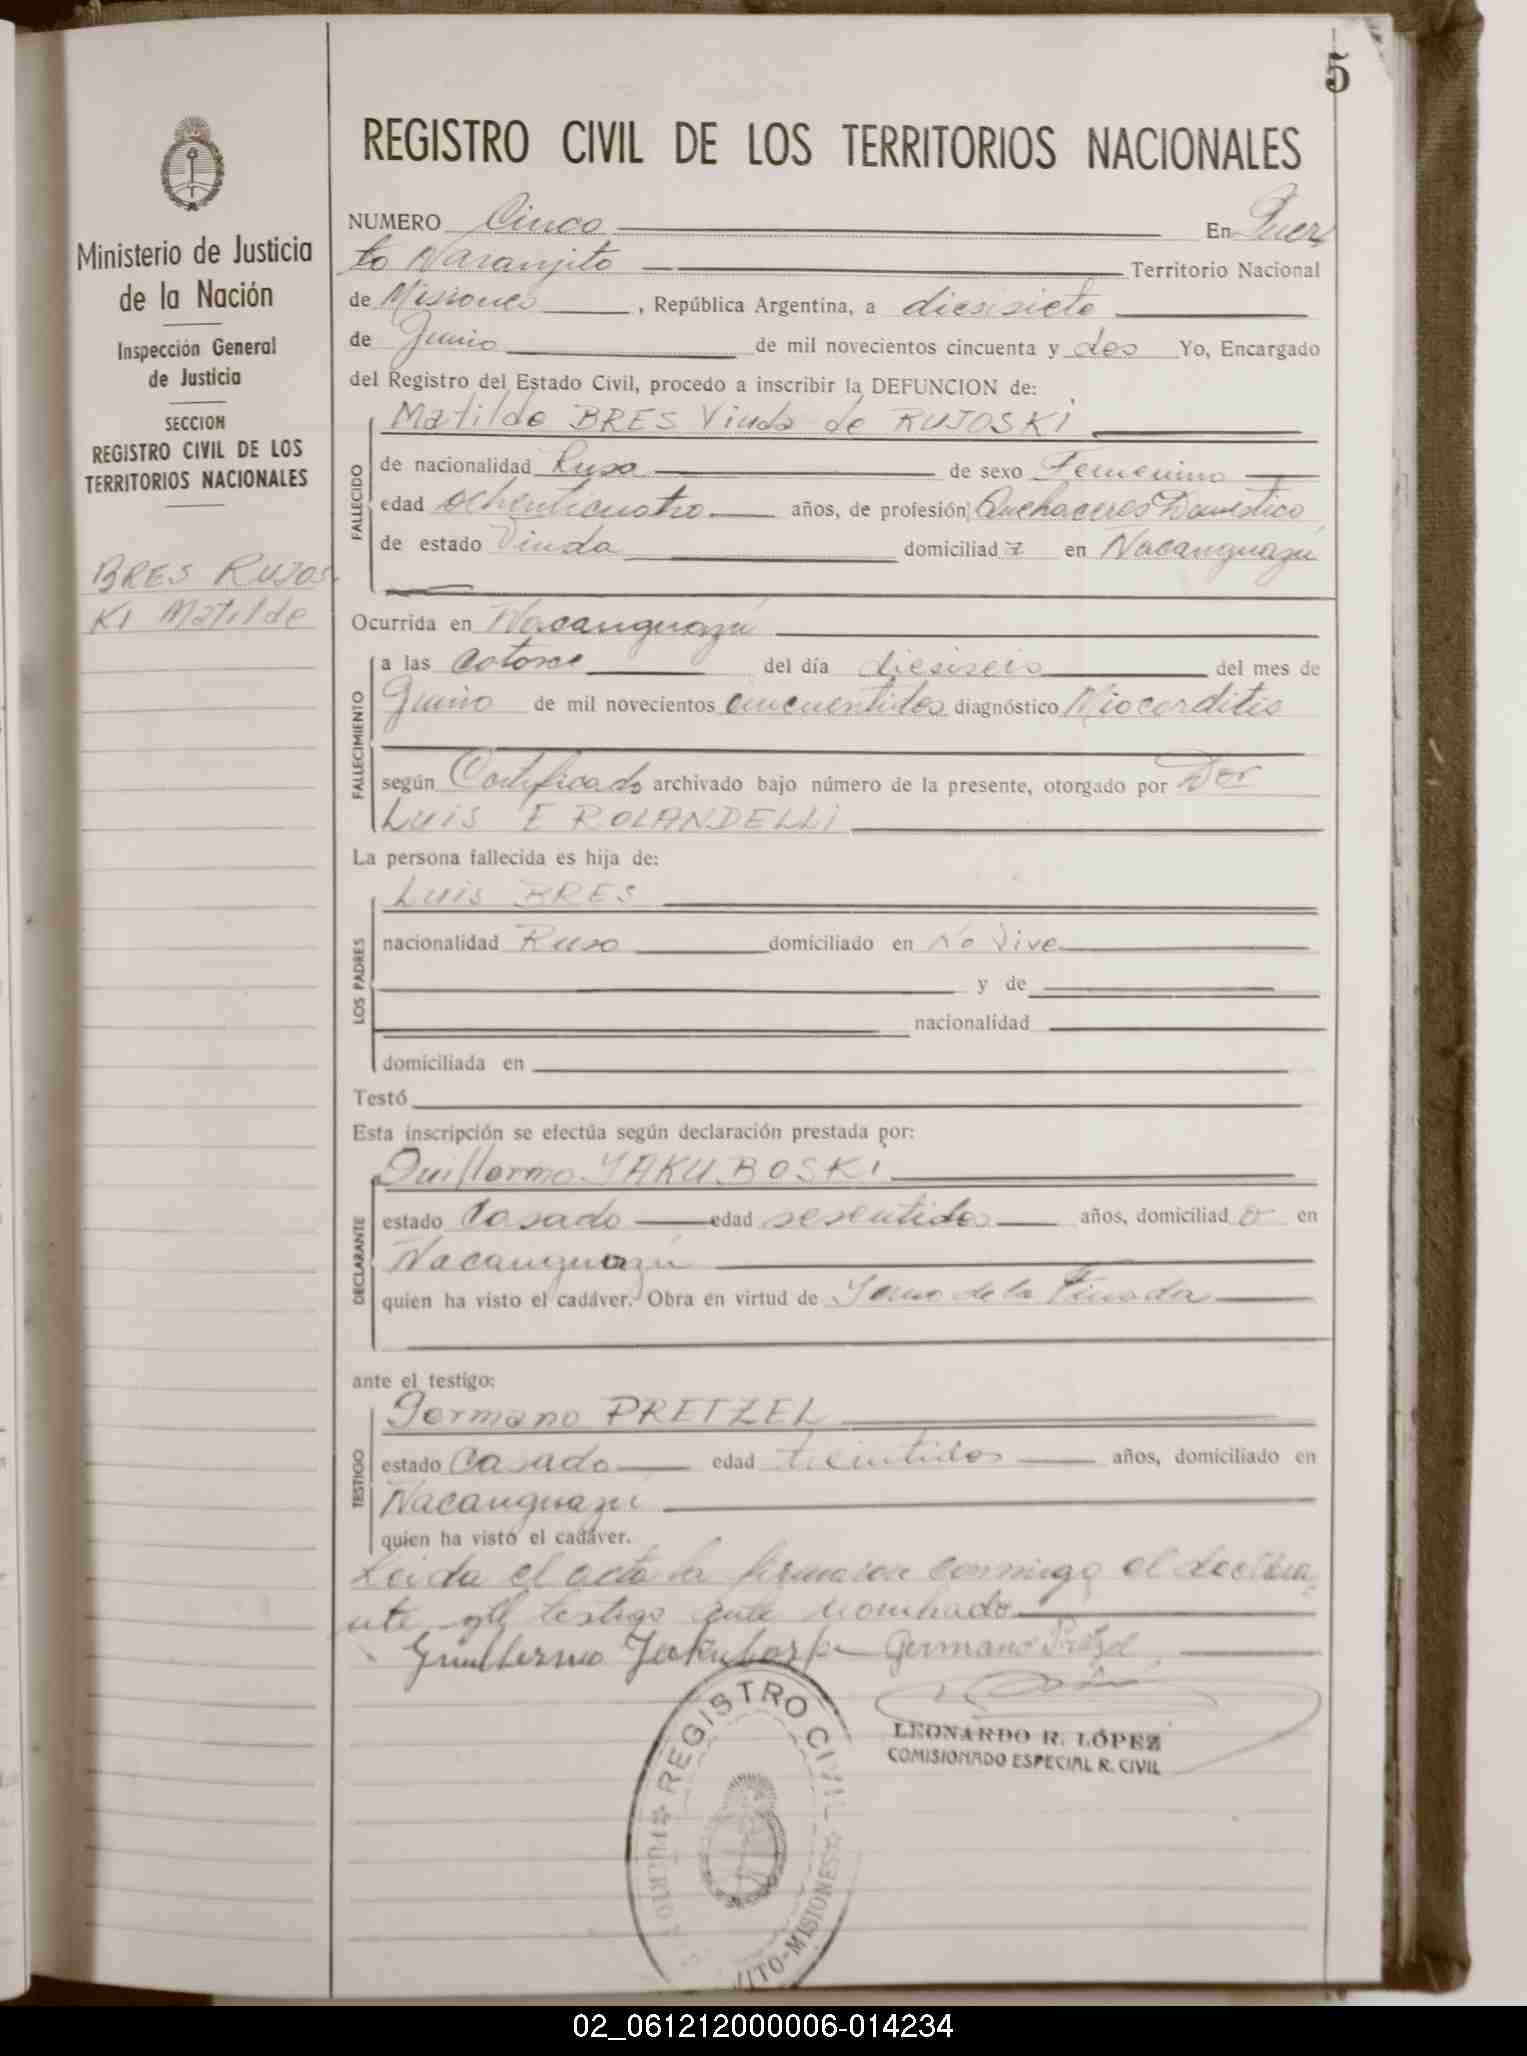 5
Ministerio de Justicia
de la Nación
Inspección General
de Justicia
SECCION
REGISTRO CIVIL DE LOS
TERRITORIOS NACIONALES
BRES RUJOS
KI Matilde
REGISTRO CIVIL DE LOS TERRITORIOS NACIONALES
NUMERO Cinco En Puer
to Naranjito Territorio Nacional
de Misiones, República Argentina, a diesisiete
de Junio de mil novecientos cincuenta y dos Yo, Encargado
del Registro del Estado Civil, procedo a inscribir la DEFUNCION de:
Matilde BRES Viuda de RUJOSKI
FALLECIDO
de nacionalidad Rusa de sexo Femenino
edad ochenticuatro años, de profesión Quehaceres Domestico
de estado Viuda domiciliad a en Ñacanguazú
Ocurrida en Ñacanguazú
FALLECIMIENTO
a las catorse del día diesiseis del mes de
Junio de mil novecientos cincuentidos diagnóstico Miocarditis
según Certificado archivado bajo número de la presente, otorgado por Dor
Luis E ROLANDELLI
La persona fallecida es hija de:
LOS PADRES
Luis BRES
nacionalidad Ruso domiciliado en No Vive
y de
nacionalidad
domiciliada en
Testó
Esta inscripción se efectúa según declaración prestada por:
DECLARANTE
Guillermo YAKUBOSKI
estado Casado edad sesentidos años, domiciliad o en
Ñacanguazú
quien ha visto el cadáver. Obra en virtud de Yerno de la Finada
ante el testigo:
TESTIGO
Germano PRETZEL
estado Casado edad treintidos años, domiciliado en
Ñacanguazu
quien ha visto el cadáver.
Leida el acta la firmaron conmigo el declara
nte y el testigo ante nombrado
Guillermo Jakuboski Germano Pretzel
LEONARDO R. LÓPEZ
COMISIONADO ESPECIAL R. CIVIL
REGISTRO CIVIL
PUERTO
ITO-MISIONES
02_061212000006-014234